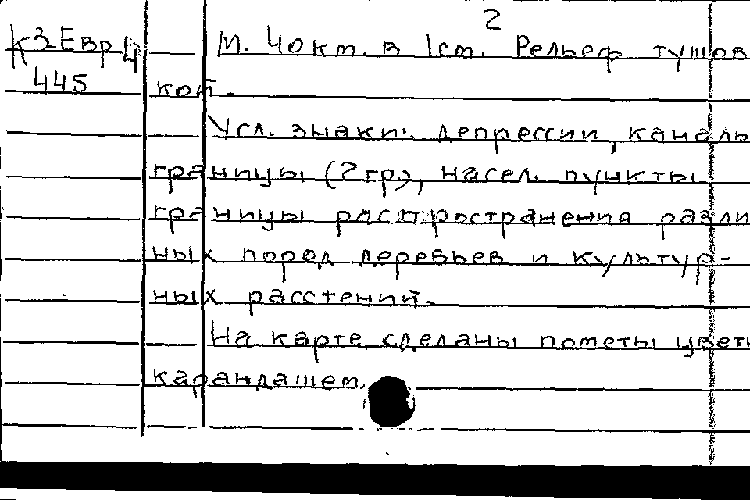 2
К 3 Евр 4
445
М. 40 км. в 1 см. Рельеф тушов
кой.
Усл. знаки: депрессии, каналы
границы (2 гр.), насел. пункты
границы распространения разли
ных пород деревьев и культур-
ных расстений.
На карте сделаны пометы цветн
карандашем.